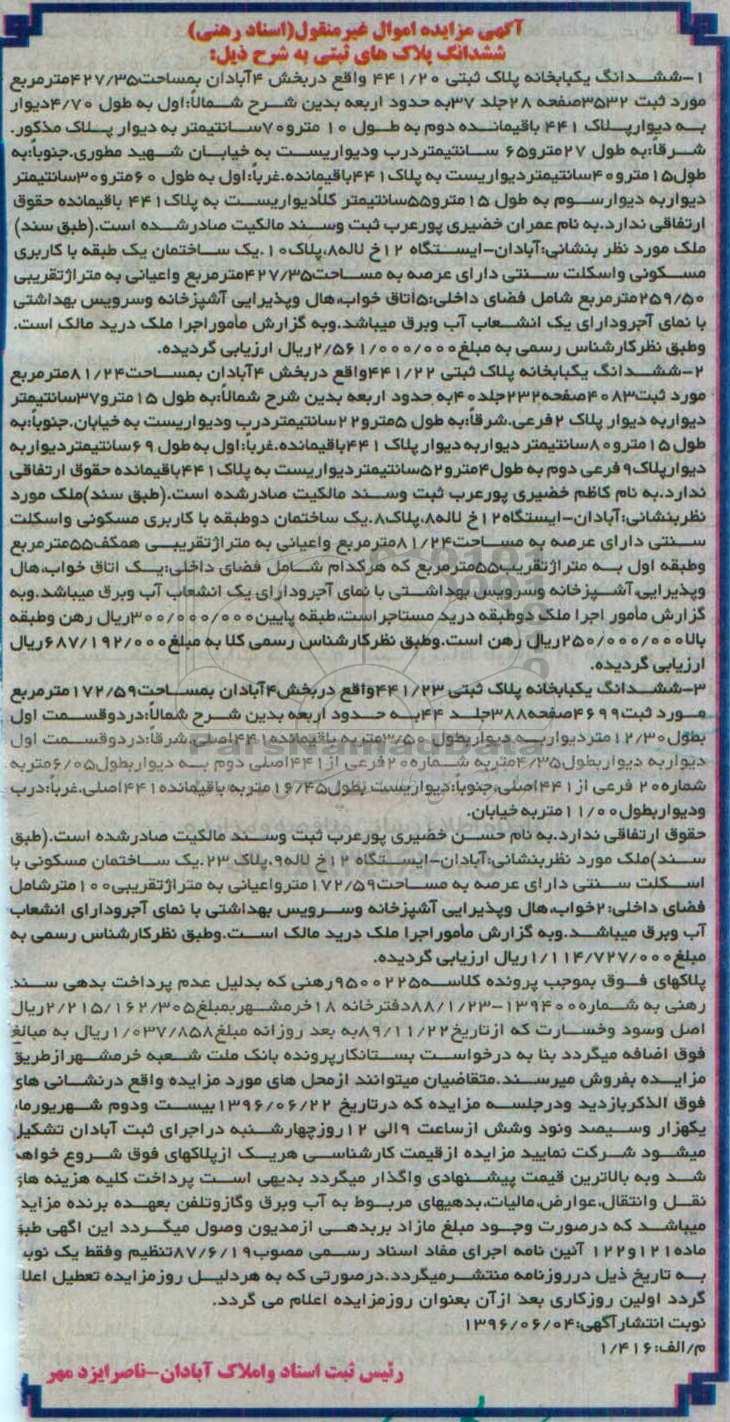 آگهی مزایده اموال غیرمنقول(اسناد رهنی)
ششدانگ پلاک های ثبتی به شرح ذیل:
۱-ششدانگ یکبابخانه پلاک ثبتی ۴۴۱/۲۰ واقع دربخش ۴آبادان بمساحت۴۲۷/۳۵مترمربع
مورد ثبت ۳۵۳۲صفحه ۲۸جلد ۳۷به حدود اربعه بدین شرح شمالاً:اول به طول ۴/۷۰دیوار
به دیوارپلاک ۴۴۱ باقیمانده دوم به طول ۱۰ مترو۷۰سانتیمتر به دیوار پلاک مذکور.
شرقاً:به طول ۲۷مترو۶۵ سانتیمتردرب ودیواریست به خیابان شهید مطوری.جنوباً:به
طول۱۵مترو۴۰سانتیمتردیواریست به پلاک۴۴۱باقیمانده.غرباً:اول به طول ۶۰مترو۳۰سانتیمتر
دیواربه دیوارسوم به طول ۱۵مترو۵۵سانتیمتر کلاًدیواریست به پلاک۴۴۱ باقیمانده حقوق
ارتفاقی ندارد.به نام عمران خضیری پورعرب ثبت وسند مالکیت صادرشده است.(طبق سند)
ملک مورد نظر بنشانی:آبادان-ایستگاه ۱۲خ لاله۸،پلاک۱۰.یک ساختمان یک طبقه با کاربری
مسکونی واسکلت سنتی دارای عرصه به مساحت۴۲۷/۳۵مترمربع واعیانی به متراژتقریبی
۲۵۹/۵۰مترمربع شامل فضای داخلی:۵اتاق خواب،هال وپذیرایی آشپزخانه وسرویس بهداشتی
با نمای آجرودارای یک انشعاب آب وبرق میباشد.وبه گزارش مأموراجرا ملک درید مالک است.
وطبق نظرکارشناس رسمی به مبلغ۲/۵۶۱/۰۰۰/۰۰۰ریال ارزیابی گردیده.
۲-ششدانگ یکبابخانه پلاک ثبتی ۴۴۱/۲۲واقع دربخش ۴آبادان بمساحت۸۱/۲۴مترمربع
مورد ثبت۴۰۸۳صفحه۲۳۲جلد۴۰به حدود اربعه بدین شرح شمالاً:به طول ۱۵مترو۳۷سانتیمتر
دیواربه دیوار پلاک ۲فرعی.شرقاً:به طول ۵مترو۲۲سانتیمتردرب ودیواریست به خیابان.جنوباً:به
طول۱۵مترو۸۰سانتیمتر دیواربه دیوار پلاک ۴۴۱باقیمانده.غرباً:اول به طول ۶۹سانتیمتردیواربه
دیوارپلاک۹فرعی دوم به طول۴مترو۵۲سانتیمتردیواریست به پلاک۴۴۱باقیمانده حقوق ارتفاقی
ندارد.به نام کاظم خضیری پورعرب ثبت وسند مالکیت صادرشده است.(طبق سند)ملک مورد
نظربنشانی:آبادان-ایستگاه۱۲خ لاله۸،پلاک۸.یک ساختمان دوطبقه با کاربری مسکونی واسکلت
سنتی دارای عرصه به مساحت۸۱/۲۴مترمربع واعیانی به متراژتقریبی همکف۵۵مترمربع
وطبقه اول به متراژتقریب۵۵مترمربع که هرکدام شامل فضای داخلی:یک اتاق خواب،هال
وپذیرایی،آشپزخانه وسرویس بهداشتی با نمای آجرودارای یک انشعاب آب وبرق میباشد.وبه
گزارش مأمور اجرا ملک دوطبقه درید مستاجراست،طبقه پایین۳۰۰/۰۰۰/۰۰۰ریال رهن وطبقه
بالا۲۵۰/۰۰۰/۰۰۰ریال رهن است.وطبق نظرکارشناس رسمی کلا به مبلغ۶۸۷/۱۹۲/۰۰۰ریال
ارزیابی گردیده.
۳-ششدانگ یکبابخانه پلاک ثبتی ۴۴۱/۲۳واقع دربخش۴آبادان بمساحت۱۷۲/۵۹مترمربع
مورد ثبت۴۶۹۹صفحه۳۸۸جلد ۴۴به حدود اربعه بدین شرح شمالاً:دردوقسمت اول
بطول۱۲/۳۰متردیواربه دیواربطول ۳/۵۰متربه باقیمانده۴۴۱اصلی.شرقا:دردوقسمت اول
دیواربه دیواربطول۴/۳۵متربه شماره۲۰فرعی از۴۴۱اصلی دوم به دیواربطول۶/۰۵متربه
شماره۲۰ فرعی از۴۴۱اصلی.جنوباً:دیواریست بطول۱۶/۴۵متربه باقیمانده۴۴۱اصلی.غرباً:درب
ودیواربطول۱۱/۰۰متربه خیابان.
حقوق ارتفاقی ندارد.به نام حسن خضیری پورعرب ثبت وسند مالکیت صادرشده است.(طبق
سند)ملک مورد نظربنشانی:آبادان-ایستگاه ۱۲خ لاله۹،پلاک ۲۳.یک ساختمان مسکونی با
اسکلت سنتی دارای عرصه به مساحت۱۷۲/۵۹مترواعیانی به متراژتقریبی۱۰۰مترشامل
فضای داخلی:۲خواب،هال وپذیرایی آشپزخانه وسرویس بهداشتی با نمای آجرودارای انشعاب
آب وبرق میباشد.وبه گزارش مأموراجرا ملک درید مالک است.وطبق نظرکارشناس رسمی به
مبلغ۱/۱۱۴/۷۲۷/۰۰۰ریال ارزیابی گردیده.
پلاکهای فوق بموجب پرونده کلاسه۹۵۰۰۲۲۵رهنی که بدلیل عدم پرداخت بدهی سند
رهنی به شماره۱۳۹۴۰۰-۸۸/۱/۲۳دفترخانه ۱۸خرمشهربمبلغ۲/۲۱۵/۱۶۲/۳۰۵ریال
اصل وسود وخسارت که ازتاریخ۸۹/۱۱/۲۲به بعد روزانه مبلغ۱/۰۳۷/۸۵۸ریال به مبالغ
فوق اضافه میگردد بنا به درخواست بستانکارپرونده بانک ملت شعبه خرمشهرازطریق
مزایده بفروش میرسند.متقاضیان میتوانند ازمحل های مورد مزایده واقع درنشانی های
فوق الذکربازدید ودرجلسه مزایده که درتاریخ ۱۳۹۶/۰۶/۲۲بیست ودوم شهریورماه
یکهزار وسیصد ونود وشش ازساعت ۹الی ۱۲روزچهارشنبه دراجرای ثبت آبادان تشکیل
میشود شرکت نمایید مزایده ازقیمت کارشناسی هریک ازپلاکهای فوق شروع خواهد
شد وبه بالاترین قیمت پیشنهادی واگذار میگردد بدیهی است پرداخت کلیه هزینه های
نقل وانتقال،عوارض،مالیات،بدهیهای مربوط به آب وبرق وگازوتلفن بعهده برنده مزاید
میباشد که درصورت وجود مبلغ مازاد بربدهی ازمدیون وصول میگردد این اگهی طبق
ماده۱۲۱و۱۲۲ آئین نامه اجرای مفاد اسناد رسمی مصوب۸۷/۶/۱۹تنظیم وفقط یک نوب
به تاریخ ذیل درروزنامه منتشرمیگردد.درصورتی که به هردلیل روزمزایده تعطیل اعلا
گردد اولین روزکاری بعد ازآن بعنوان روزمزایده اعلام می گردد.
نوبت انتشارآگهی:۱۳۹۶/۰۶/۰۴
م/الف:۱/۴۱۶
رئیس ثبت اسناد واملاک آبادان-ناصرایزد مهر
ParsNamadData